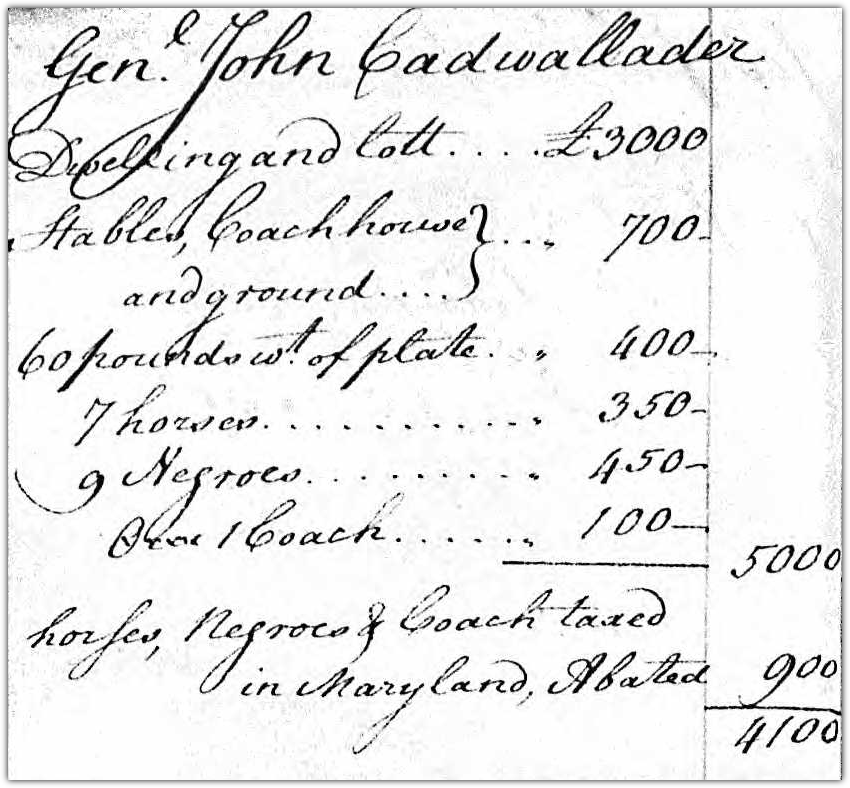 Gen.l John Cadwallader
Dwelling and lott.....£3000
Stables, Coach house } ... 700-
and ground....
60 pounds wt. of plate. „ 400-
7 horses............„ 350-
9 Negroes..........„ 450-
1 Coach......„ 100-
5000
horses, Negroes & Coach taxed
in Maryland, Abated 900
4100